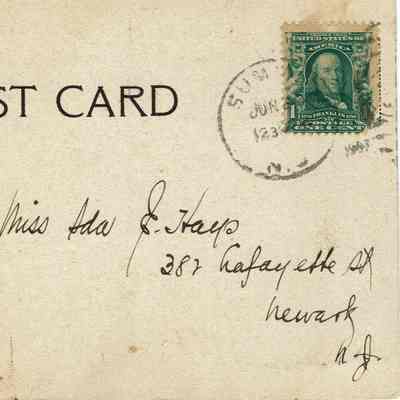 ST CARD
SUM
JUN
1230
N.J.
UNITED STATES OF
AMERICA
FRANKLIN
POSTAGE
ONE CENT
Miss Ida J. Hays
382 Lafayette St
Newark
N.J.